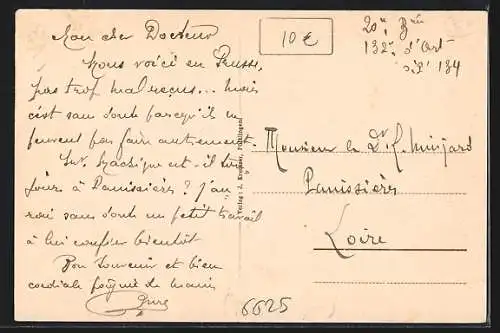 Mon cher Docteur
Nous voici en Prusse,
pas trop mal reçus... mais
c'est sans doute parce qu'ils ne
peuvent pas faire autrement.
est-il tou-
jours à Panissières? J'au-
rai sans doute un petit travail
à lui confier bientôt
Bon souvenir et bien
cordiale poignée de main
10 €
20e Bie
132e d'Art
134
Verlag: J. Krempser, Püttlingen
Monsieur le Dr F. Minjard
Panissières
Loire
6625